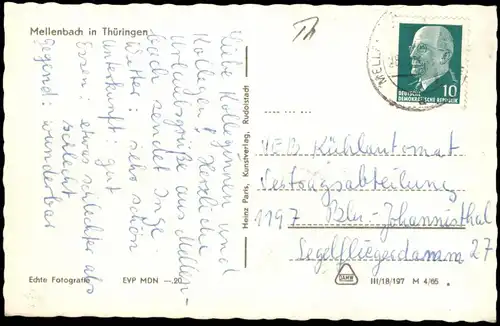 Mellenbach in Thüringen
Liebe Kolleginnen und
Kollegen! Herzliche
Urlaubsgrüße aus Mellen-
bach sendet Inge.
Wetter: sehr schön
Unterkunft: gut
Essen: etwas schlechter als
schlecht
Gegend: wunderbar
Echte Fotografie EVP MDN —.20
Heinz Paris, Kunstverlag, Rudolstadt
Th
MELL
10
DEUTSCHE
DEMOKRATISCHE REPUBLIK
VEB Kühlautomat
1197 Bln.-Johannisthal
Segelfliegerdamm 27
III/18/197 M 4/65